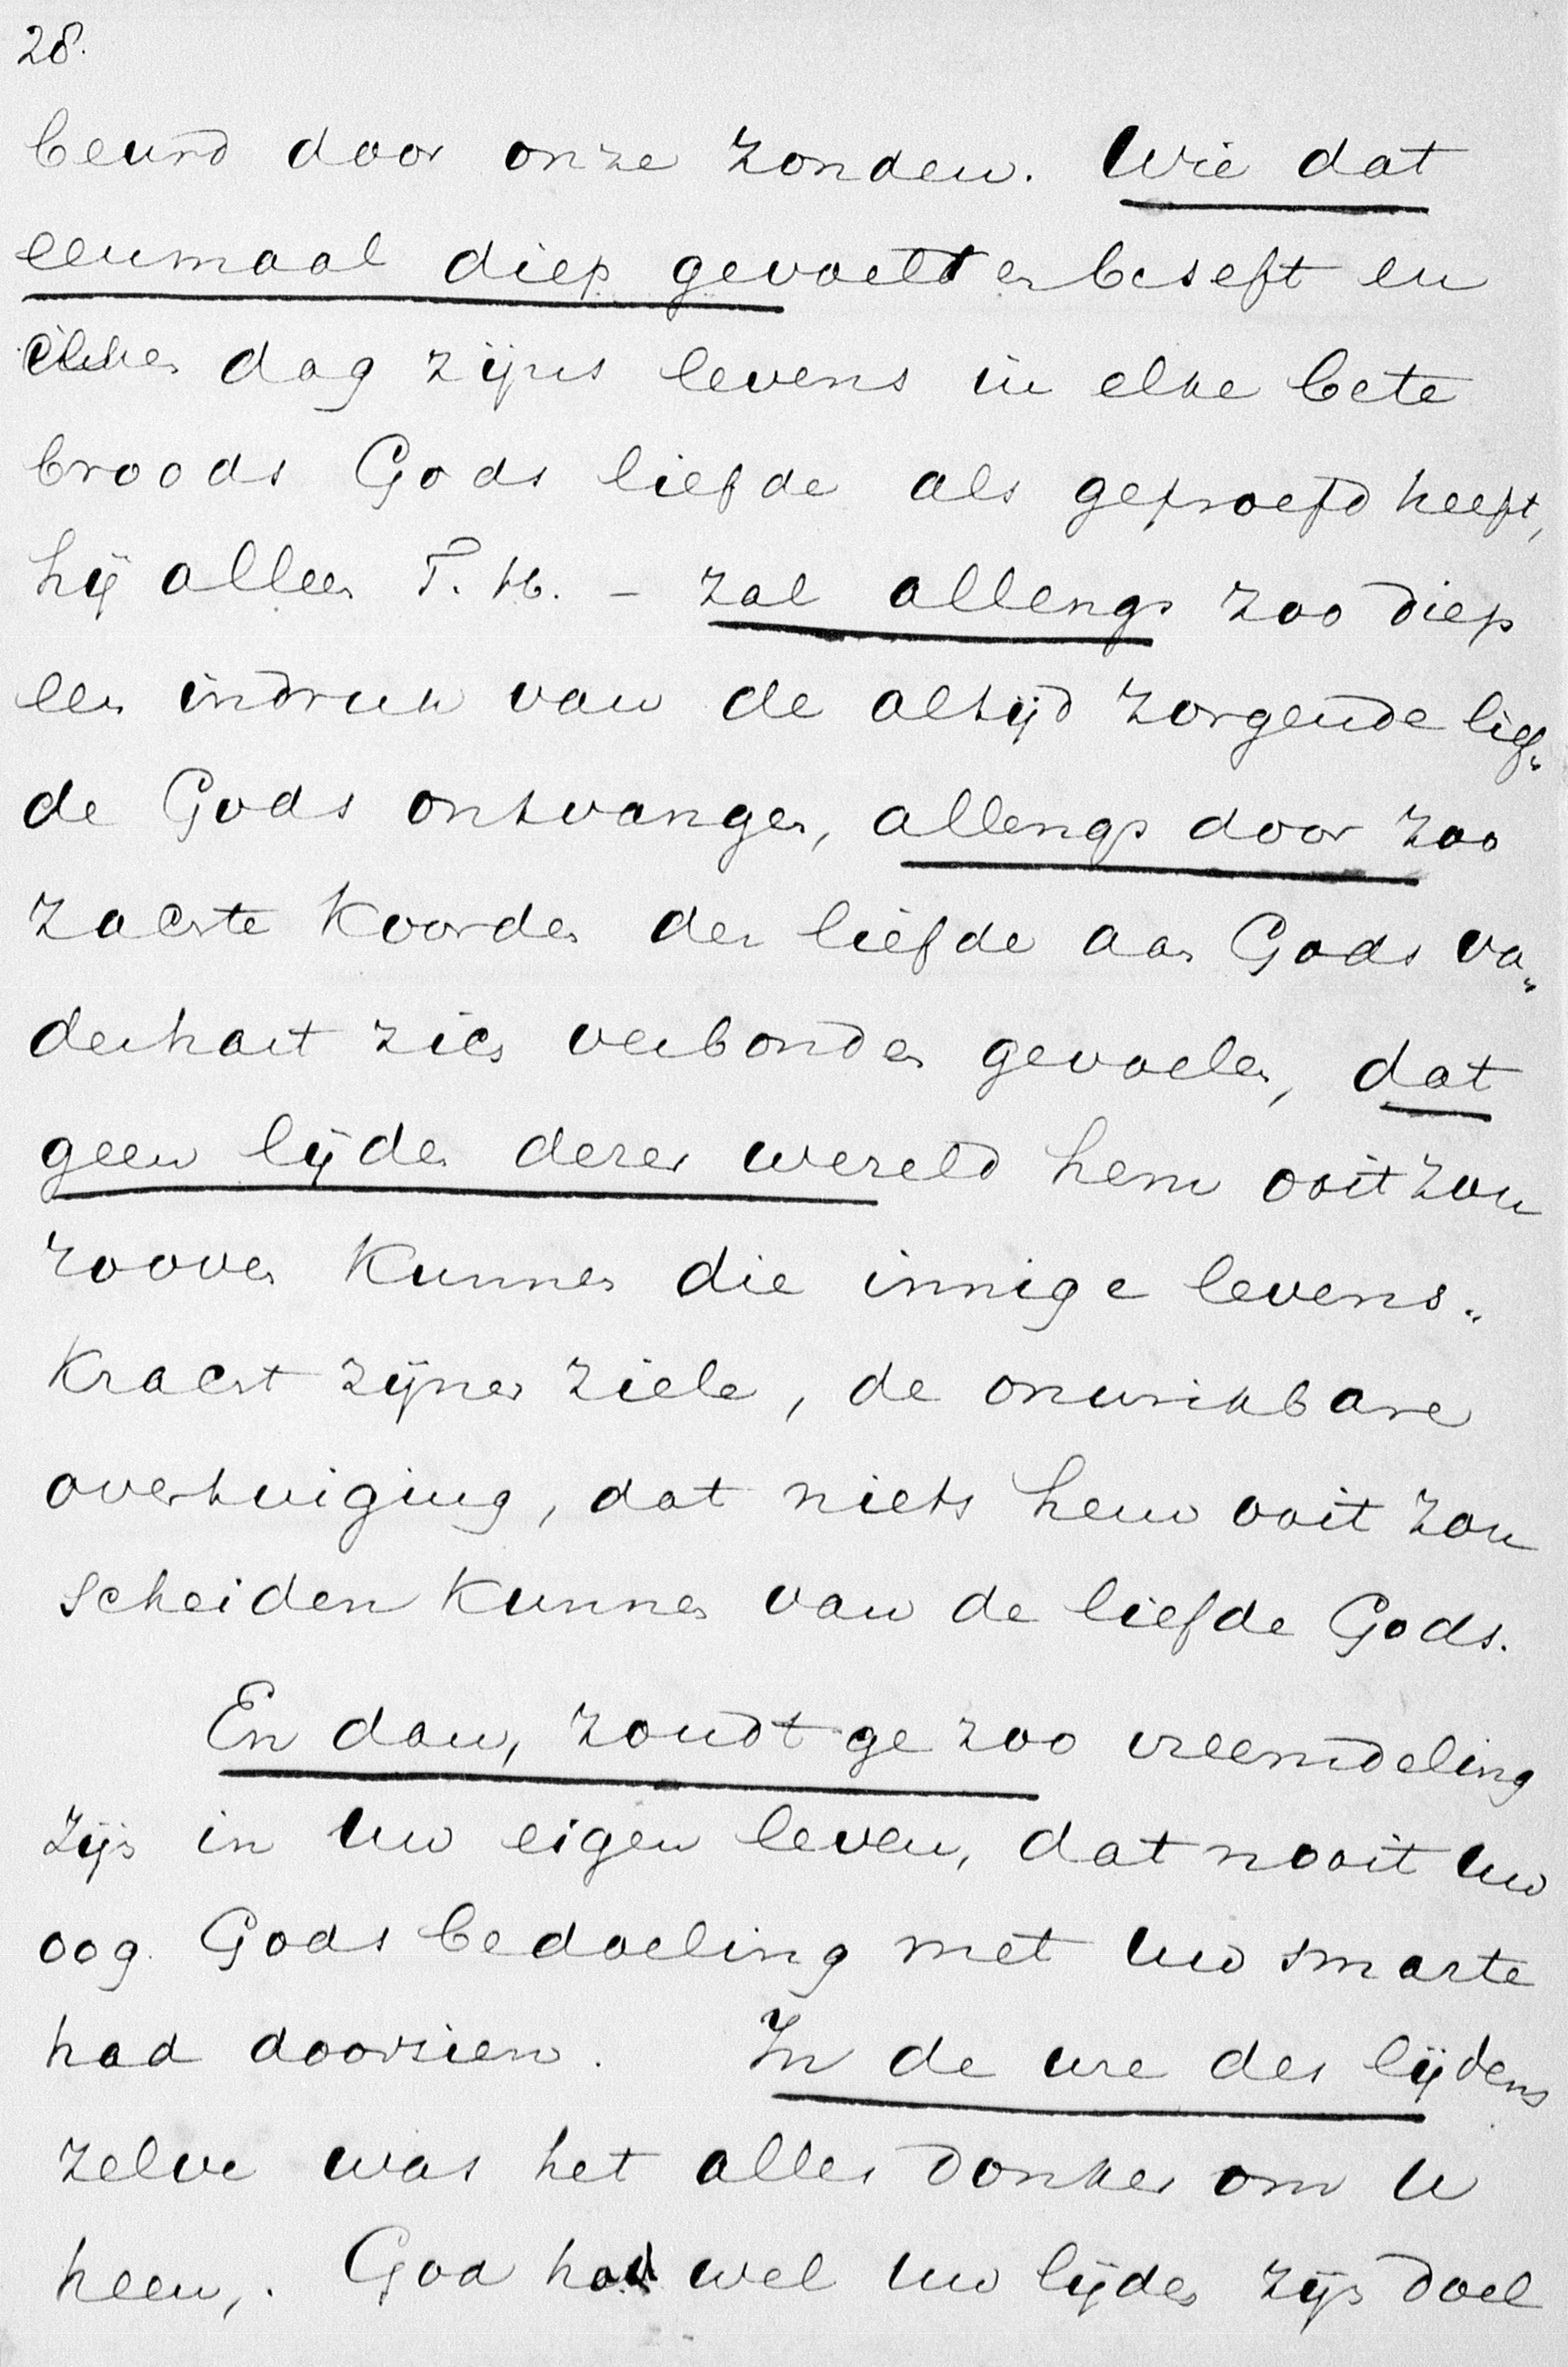 28.
beurd door onze zonden. Wie dat
eenmaal diep gevoeld en beseft en
elken dag zijns levens in elke bete
broods Gods liefde als geproefd heeft,
hij alleen T. H. – zal allengs zoo diep
een indruk van de altijd zorgende lief„
de Gods ontvangen, allengs door zoo
zachte koorden der liefde aan Gods va„
derhart zich verbonden gevoelen, dat
geen lijden dezer wereld hem ooit zou
rooven kunnen die innige levens„
kracht zijner ziele, de onwrikbare
overtuiging, dat niets hem ooit zou
scheiden kunnen van de liefde Gods.
En dan, zoudt ge zoo vreemdeling
zijn in uw eigen leven, dat nooit uw
oog Gods bedoeling met uw smarte
had doorzien. In de ure des lijdens
zelve was het alles donker om u
heen,. God had wel uw lijden zijn doel